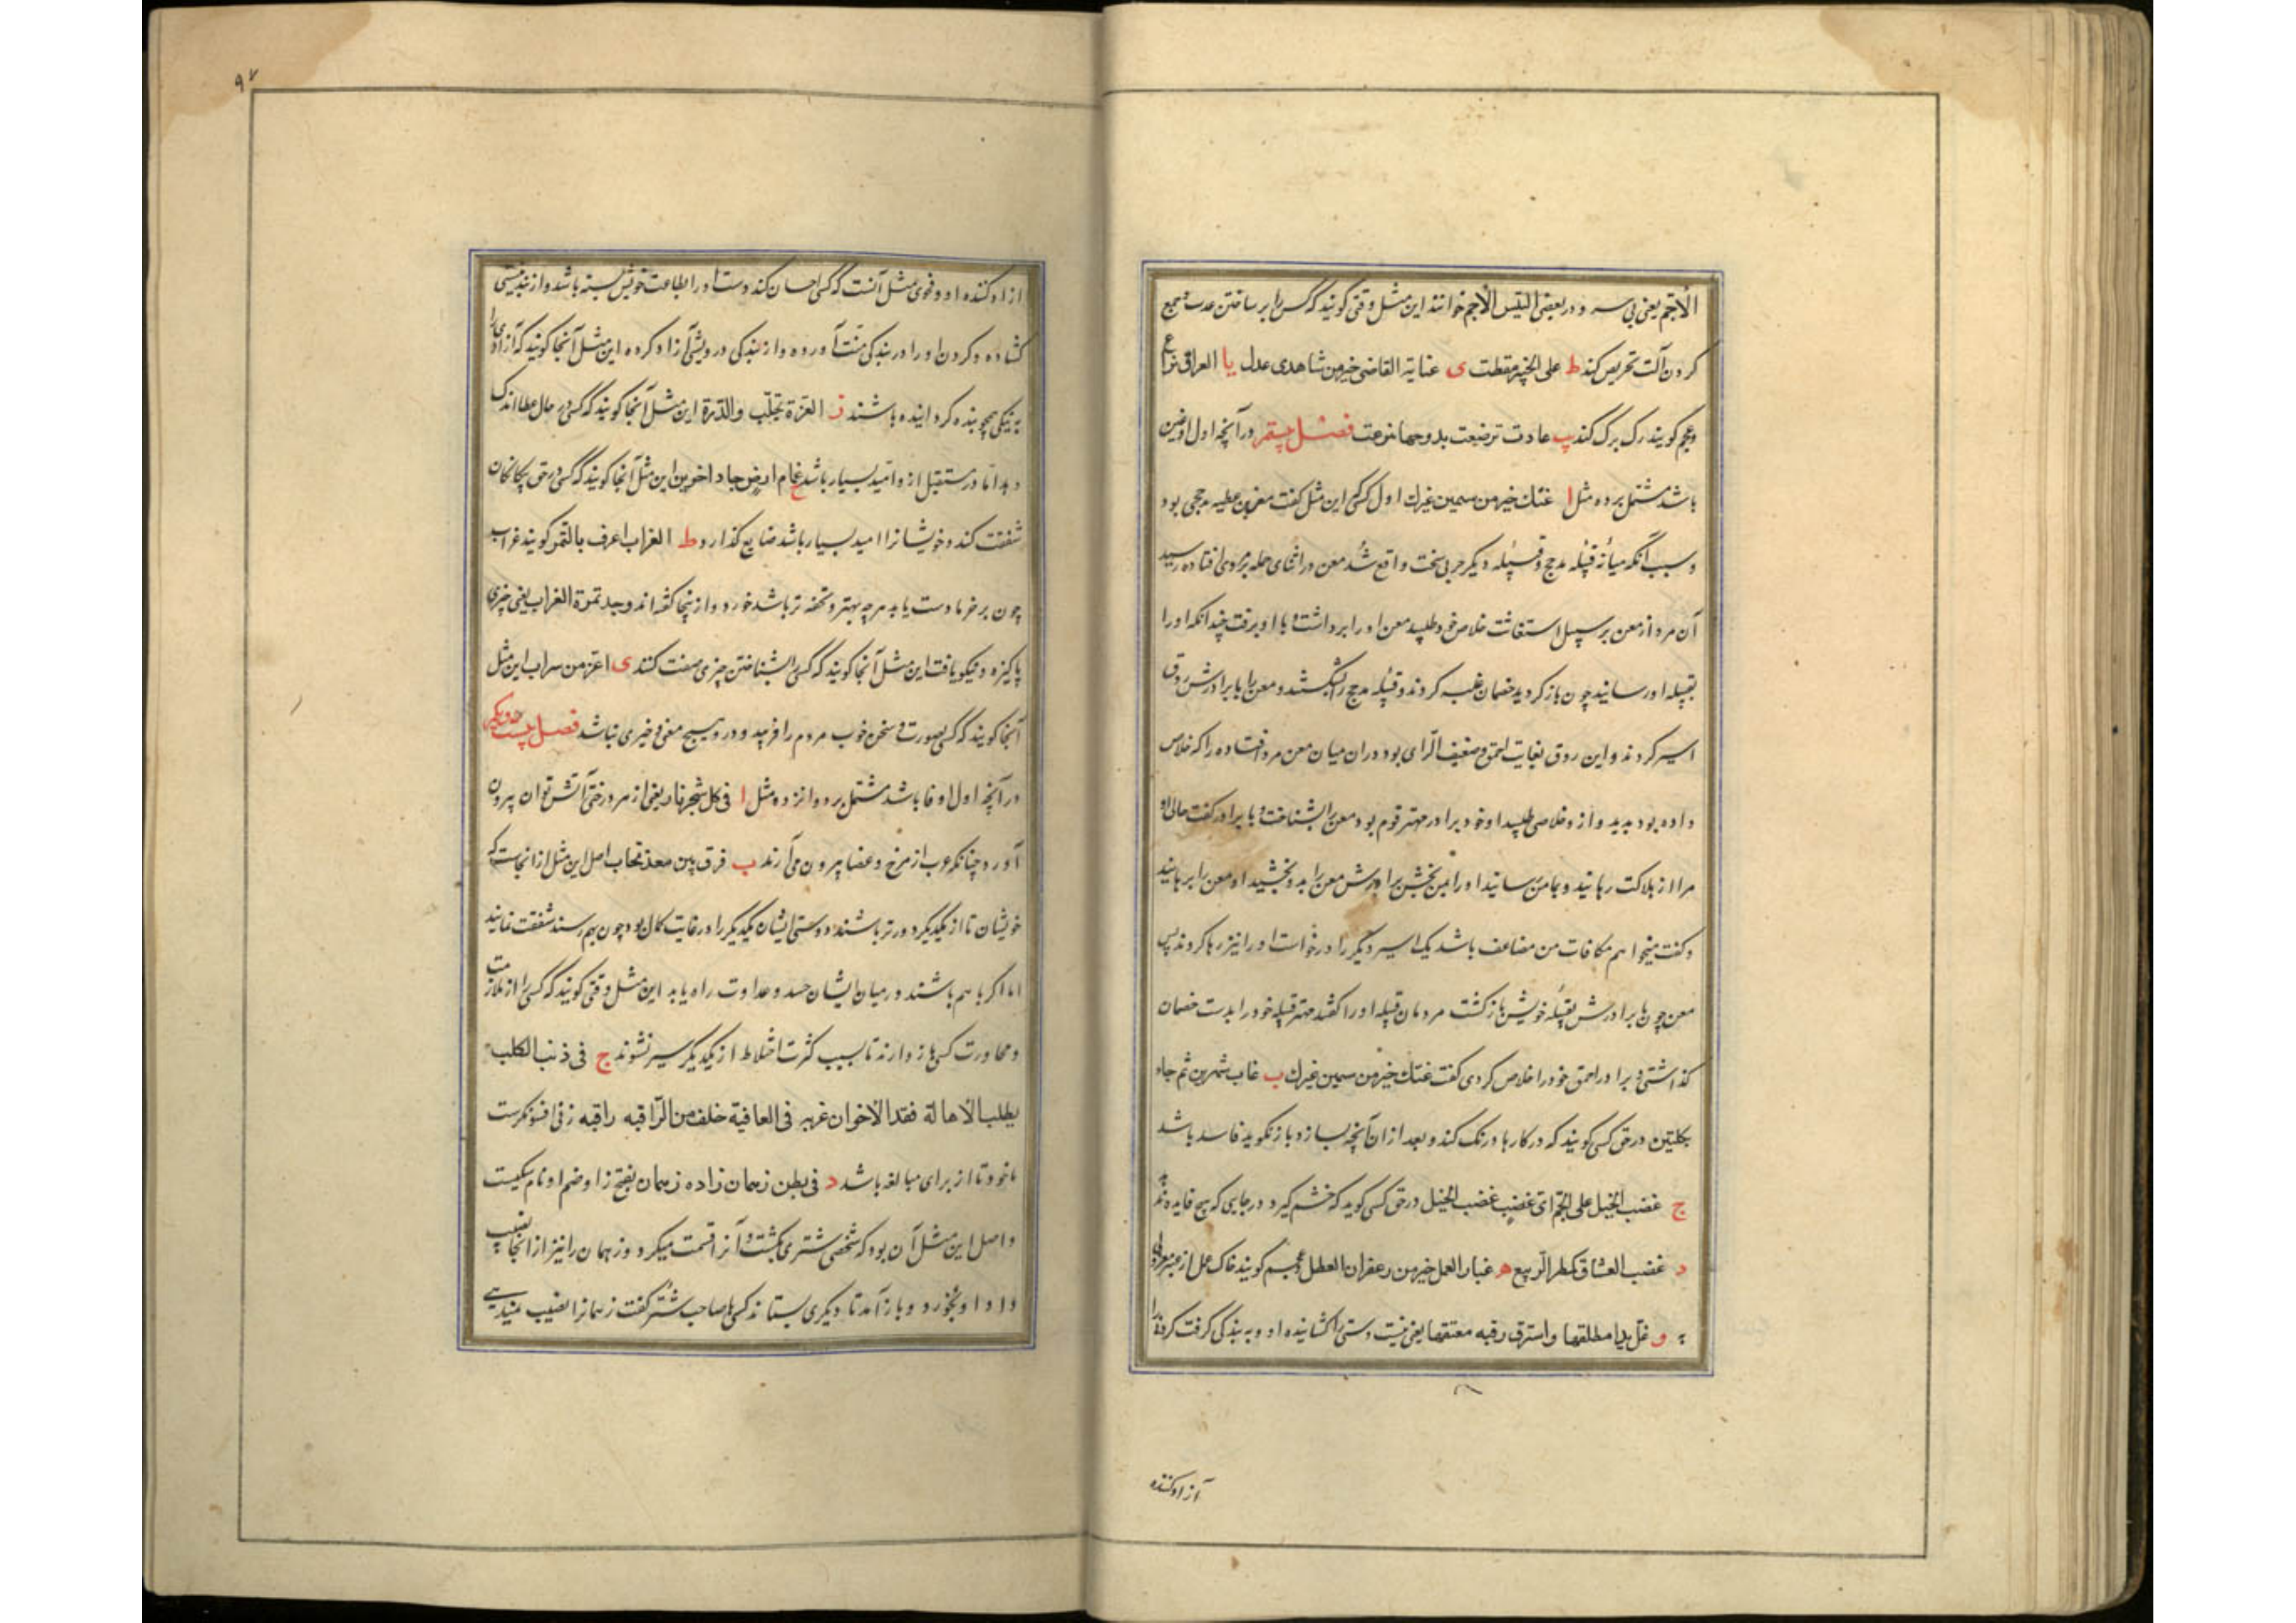 الأجم یعنی بی سر و در بعضی التیس الأجم خوانند این مثل وقتی کویند که کسی را بر ساختن عدت و جمع
کردن آلت تحریص کند ط علی الخبیر سقطت ی عنایة القاضی خیر من شاهدی عدل یا العراق نزاع
وعجم کویند رک برک کند یب عادت ترضعت بدوحها نوعت فصل بیستم در آنچه اول او غین
باشد مشتمل بر ده مثل ا غثك خیر من سمین غیرك اول کسی که این مثل کفت معن بن عطیه مذحجی بود
و سبب آنکه میانه قبیله مذحج و قبیله دیکر حربی سخت واقع شد معن در اثنای حمله بر مردی افتاده رسید
آن مرد از معن بر سبیل استغاثت خلاص خود طلبید معن او را برداشت و با او برفت چندانکه او را
بقبیله او رسانید چون بازکردید خصمان غلبه کردند و قبیله مذحج را بشکستند و معن را با برادرش روق
اسیر کردند و این روق بغایت احمق و ضعیف الرای بود در ان میان معن مرد افتاده را که خلاص
داده بود بدید و از و خلاصی طلبید او خود برادر مهتر قوم بود معن را بشناخت و با برادر کفت حالی او
مرا از هلاکت رهانید و بمامن رسانید او را بمن بخش برادرش معن را بدو بخشید او معن را برهانید
و کفت میخواهم مکافات من مضاعف باشد یک اسیر دیکر را درخواست او را نیز رها کردند پس
معن چون با برادرش بقبیله خویش بازکشت مردمان قبیله او را کفتند مهتر قبیله خود را بدست خصمان
کذاشتی و برادر احمق خود را خلاص کردی کفت غثك خیر من سمین غیرك ب غاب شهرین ثم جاء
بکلبین در حق کسی کویند که در کارها درنک کند و بعد از ان آنچه بسازد یا بکوید فاسد باشد
ج غضب الخیل علی اللجم ای غضب غضب الخیل در حق کسی کوید که خشم کیرد در جایی که هیچ فایده ندهد
د غضب العشاق کمطر الربیع ه غبار العمل خیر من زعفران العطل وعجم کویند خاک عمل از عبیر معزولی
به و غل یدا مطلقها واسترق رقبة معتقها یعنی ببست دستی را کشاینده او و به بندکی کرفت کردنی را
آزاد کننده
۹۷
ازاد کننده او و فحوی مثل آنست که کسی احسان کند دست او را بطاعت خویش بسته باشد و از نیستی
کشاده و کردن او را در بندکی منت آورده و از بندکی درویشی آزاد کرده این مثل آنجا کویند که آزادی را
به نیکی همچو بنده کردانیده باشند ز الغرة تجلب والدرة این مثل آنجا کویند که کسی در حال عطا اندک
دهد اما در مستقبل از و امید بسیار باشد ح غمام ارض جاد اخرین این مثل آنجا کویند که کسی در حق بیکانکان
شفقت کند و خویشانرا امید بسیار باشد ضایع کذارد ط الغراب اعرف بالتمر کویند غراب
چون بر خرما دست یابد هرچه بهتر و تحفه تر باشد خورد و از ینجا کفته اند وجد تمرة الغراب یعنی چیزی
پاکیزه و نیکو یافت این مثل آنجا کویند که کسی را بشناختن چیزی صفت کنند ی اغر من سراب این مثل
آنجا کویند که کسی بصورت و سخن خوب مردم را فریبد و در و هیچ معنی و خیری نباشد فصل بیست و یکم
در آنچه اول او فا باشد مشتمل بر دوازده مثل ا فی کل شجر نار یعنی از هر درختی آتش توان بیرون
آورد چنانکه عرب از مرخ و عفار بیرون می آرند ب فرق بین معد تحاب اصل این مثل از انجاست که
خویشان تا از یکدیکر دورتر باشند دوستی ایشان یکدیکر را در غایت کمال بود چون بهم رسند شفقت نمایند
اما اکر با هم باشند در میان ایشان حسد و عداوت راه یابد این مثل وقتی کویند که کسی را از ملازمت
و مجاورت کسی باز دارند تا بسبب کثرت اختلاط از یکدیکر سیر نشوند ج فی ذنب الکلب
یطلب الاهالة فقد الاخوان غربه فی العافیة خلف من الراقیه راقیه زنی افسونکرست
ماخوذ تا از برای مبالغه باشد د فی بطن زهمان زاده زهمان بفتح زا و ضم او نام سکیست
و اصل این مثل آن بود که شخصی شتری بکشت و آنرا قسمت میکرد و زهمان را نیز از انجا نصیب
داد او بخورد و بازآمد تا دیکری بستاند کسی با صاحب شتر کفت زهمانرا نصیب نمیدهی